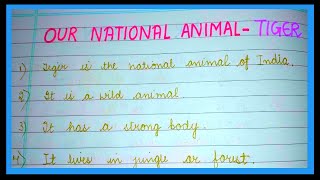 OUR NATIONAL ANIMAL- TIGER
1) Tiger is the national animal of India.
2) It is a wild animal.
3) It has a strong body.
4) It lives in jungle or forest.